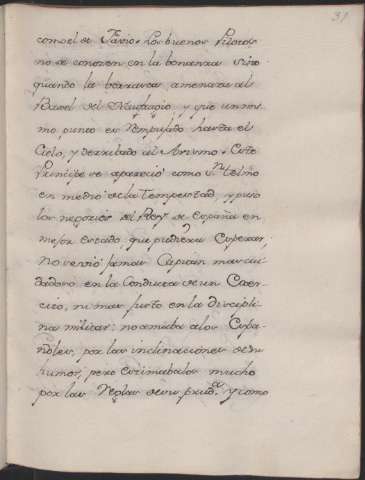 31
como el de Favio. Los buenos Pilotos
no se conocen en la bonanza sino
quando la borrasca amenaza al
Baxel del Naufragio y que un mis
mo punto es rempujado hasta el
Cielo, y derribado al Avismo. Este
Principe se aparecio como Sn. Telmo
en medio de la Tempestad, y puso
los negocios del Rey de España en
mejor estado, que pudiera esperar,
no se vio jamas Capitan mas cui
dadoso en la Conducta de un Exer-
cito, ni mas justo en la discipli
na militar: no amaba a los Espa-
ñoles, por las inclinaciones de su
humor, pero estimabalos mucho
por las Reglas de su prud.a y como